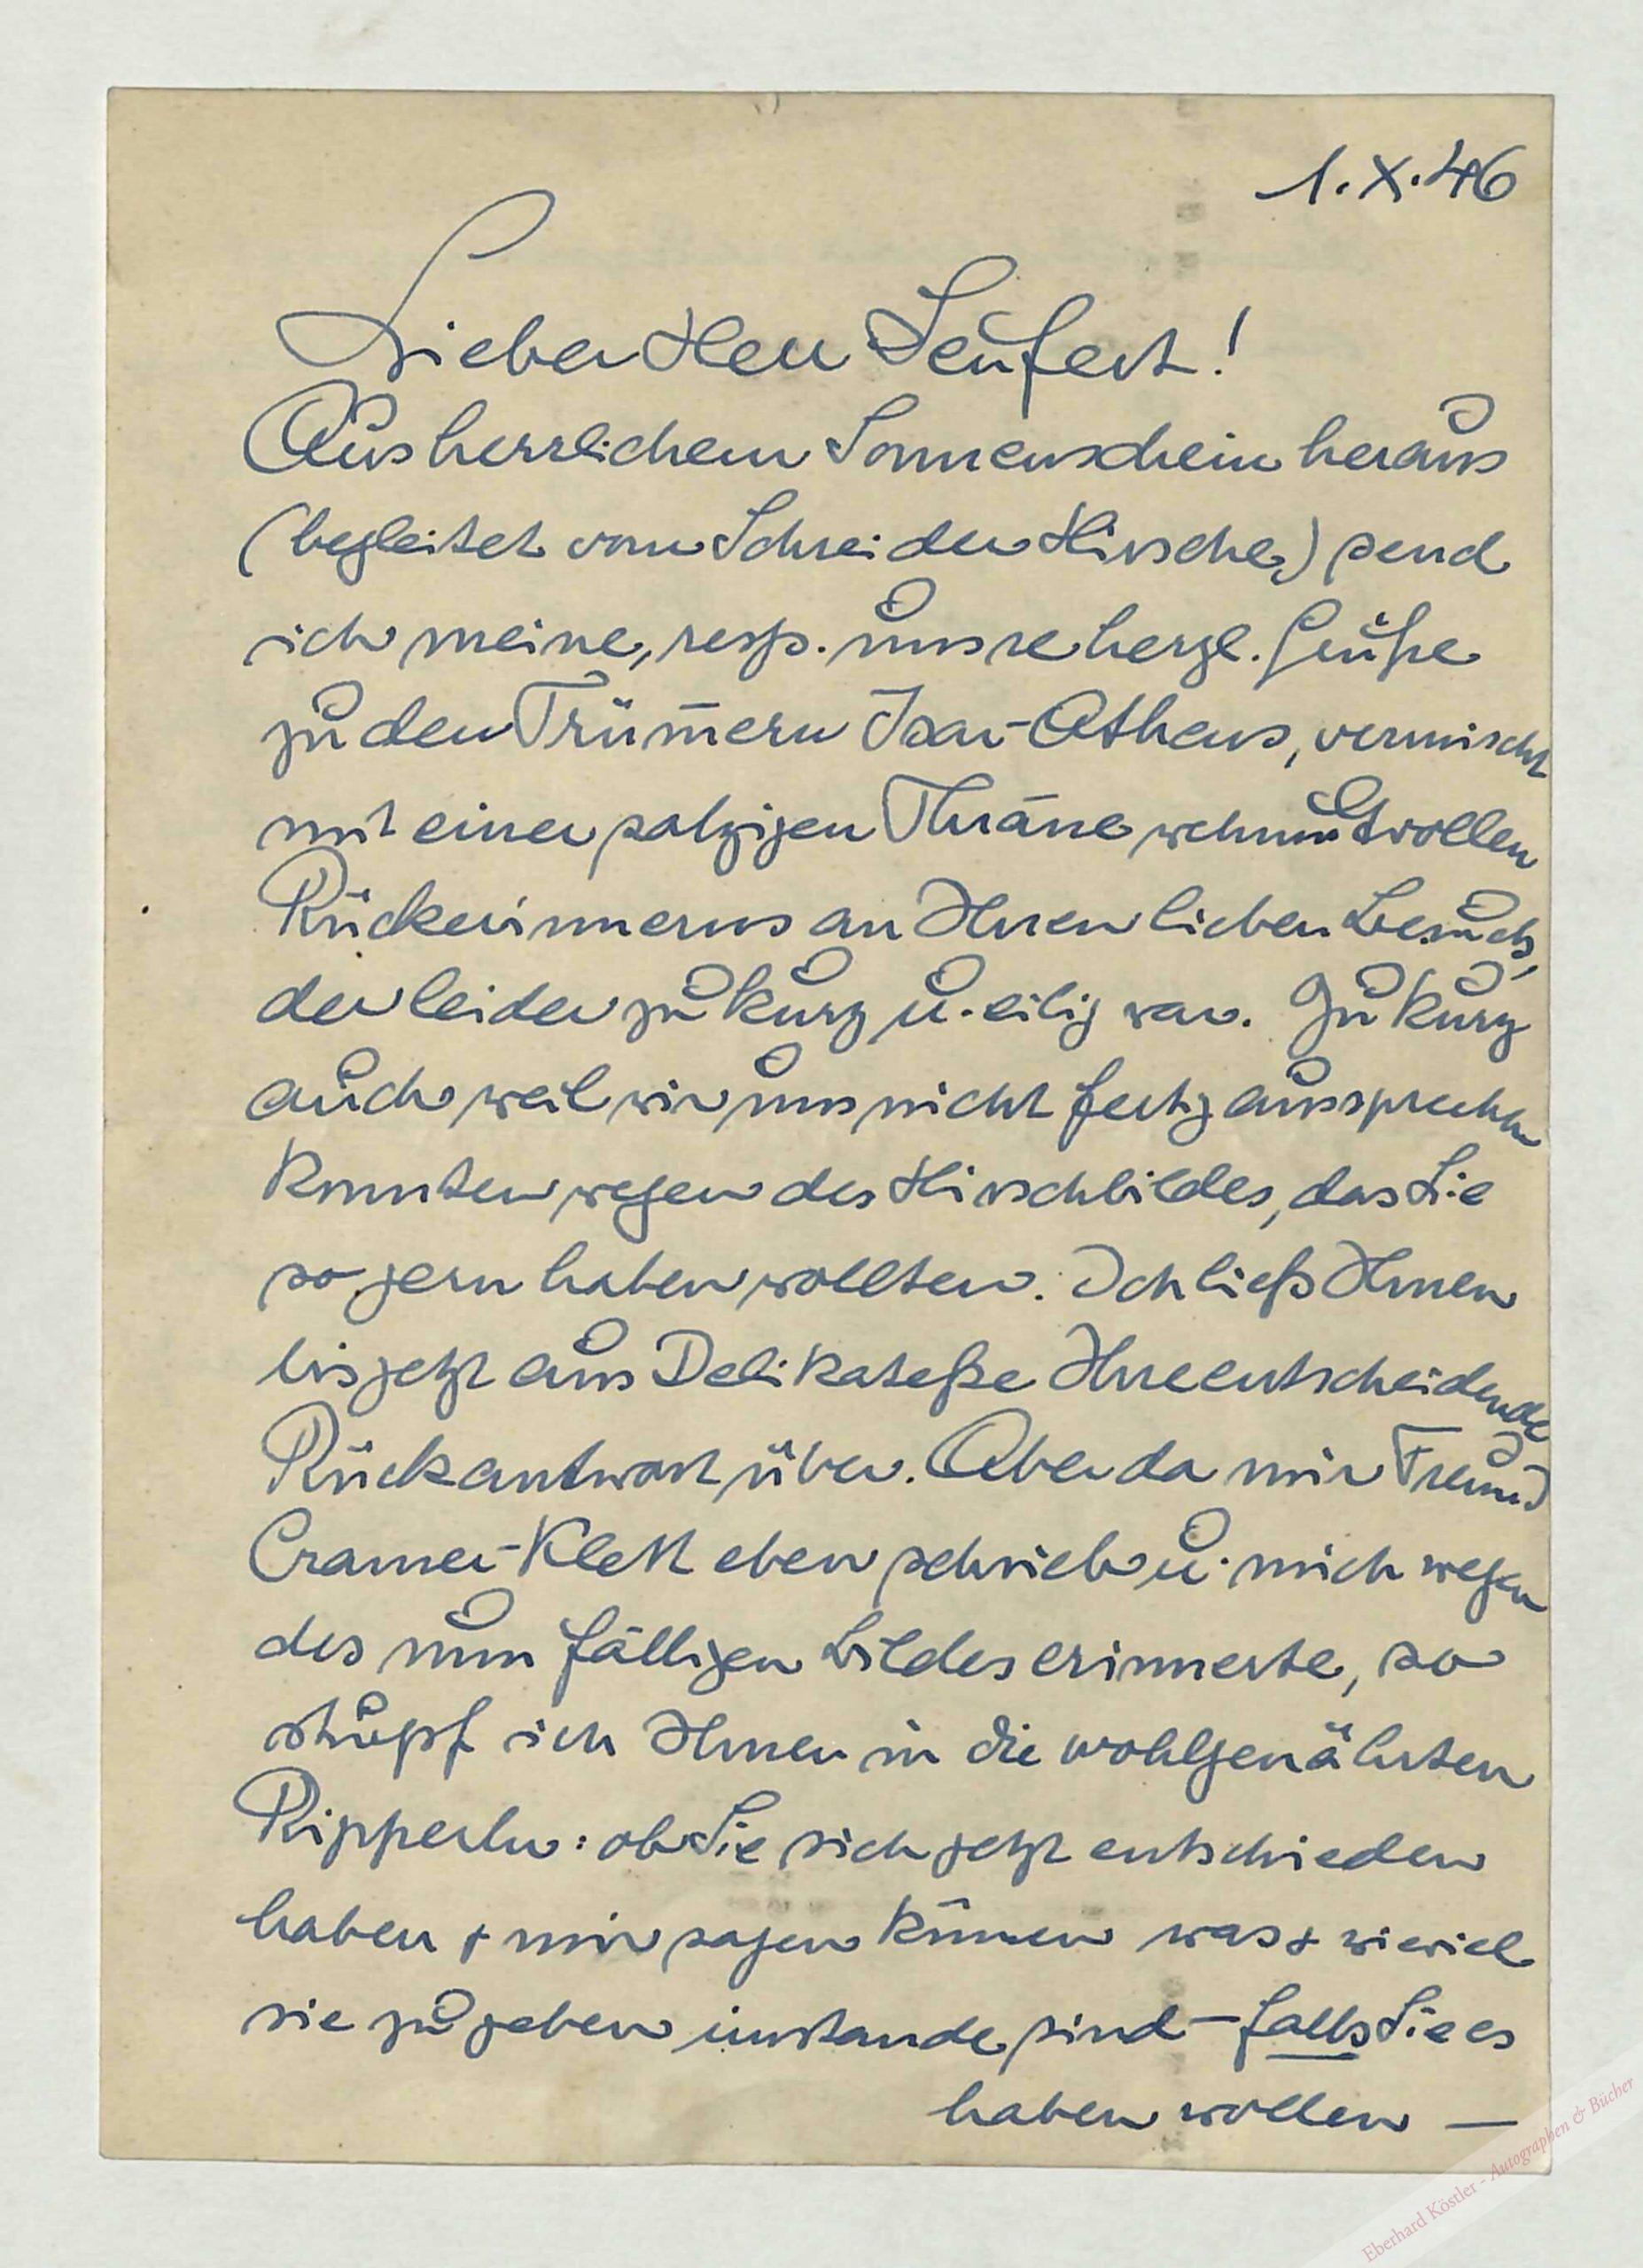 1. X. 46
Lieber Herr Seufert!
Aus herrlichem Sonnenschein heraus
(begleitet vom Schrei der Hirsche) send
ich meine, resp. unsre herzl. Grüße
zu den Trüm̄ern Isar-Athens, vermischt
mit einer salzigen Thräne wehmutvollen
Rückerinnerns an Ihren lieben Besuch,
der leider zu kurz u. eilig war. Zu kurz
auch weil wir uns nicht fertig aussprechen
konnten wegen des Hirschbildes, das Sie
so gern haben wollten. Ich ließ Ihnen
bis jetzt aus Delikateße Ihre entscheidende
Rückantwort über. Aber da mir Freund
Cramer-Klett eben schrieb u. mich wegen
des nun fälligen Bildes erinnerte, so
stupf ich Ihnen in die wohlgenährten
Ripperln: ob Sie sich jetzt entschieden
haben + mir sagen können was + wieviel
sie zu geben imstande sind – falls Sie es
haben wollen —
Eberhard Köstler - Autographen & Bücher